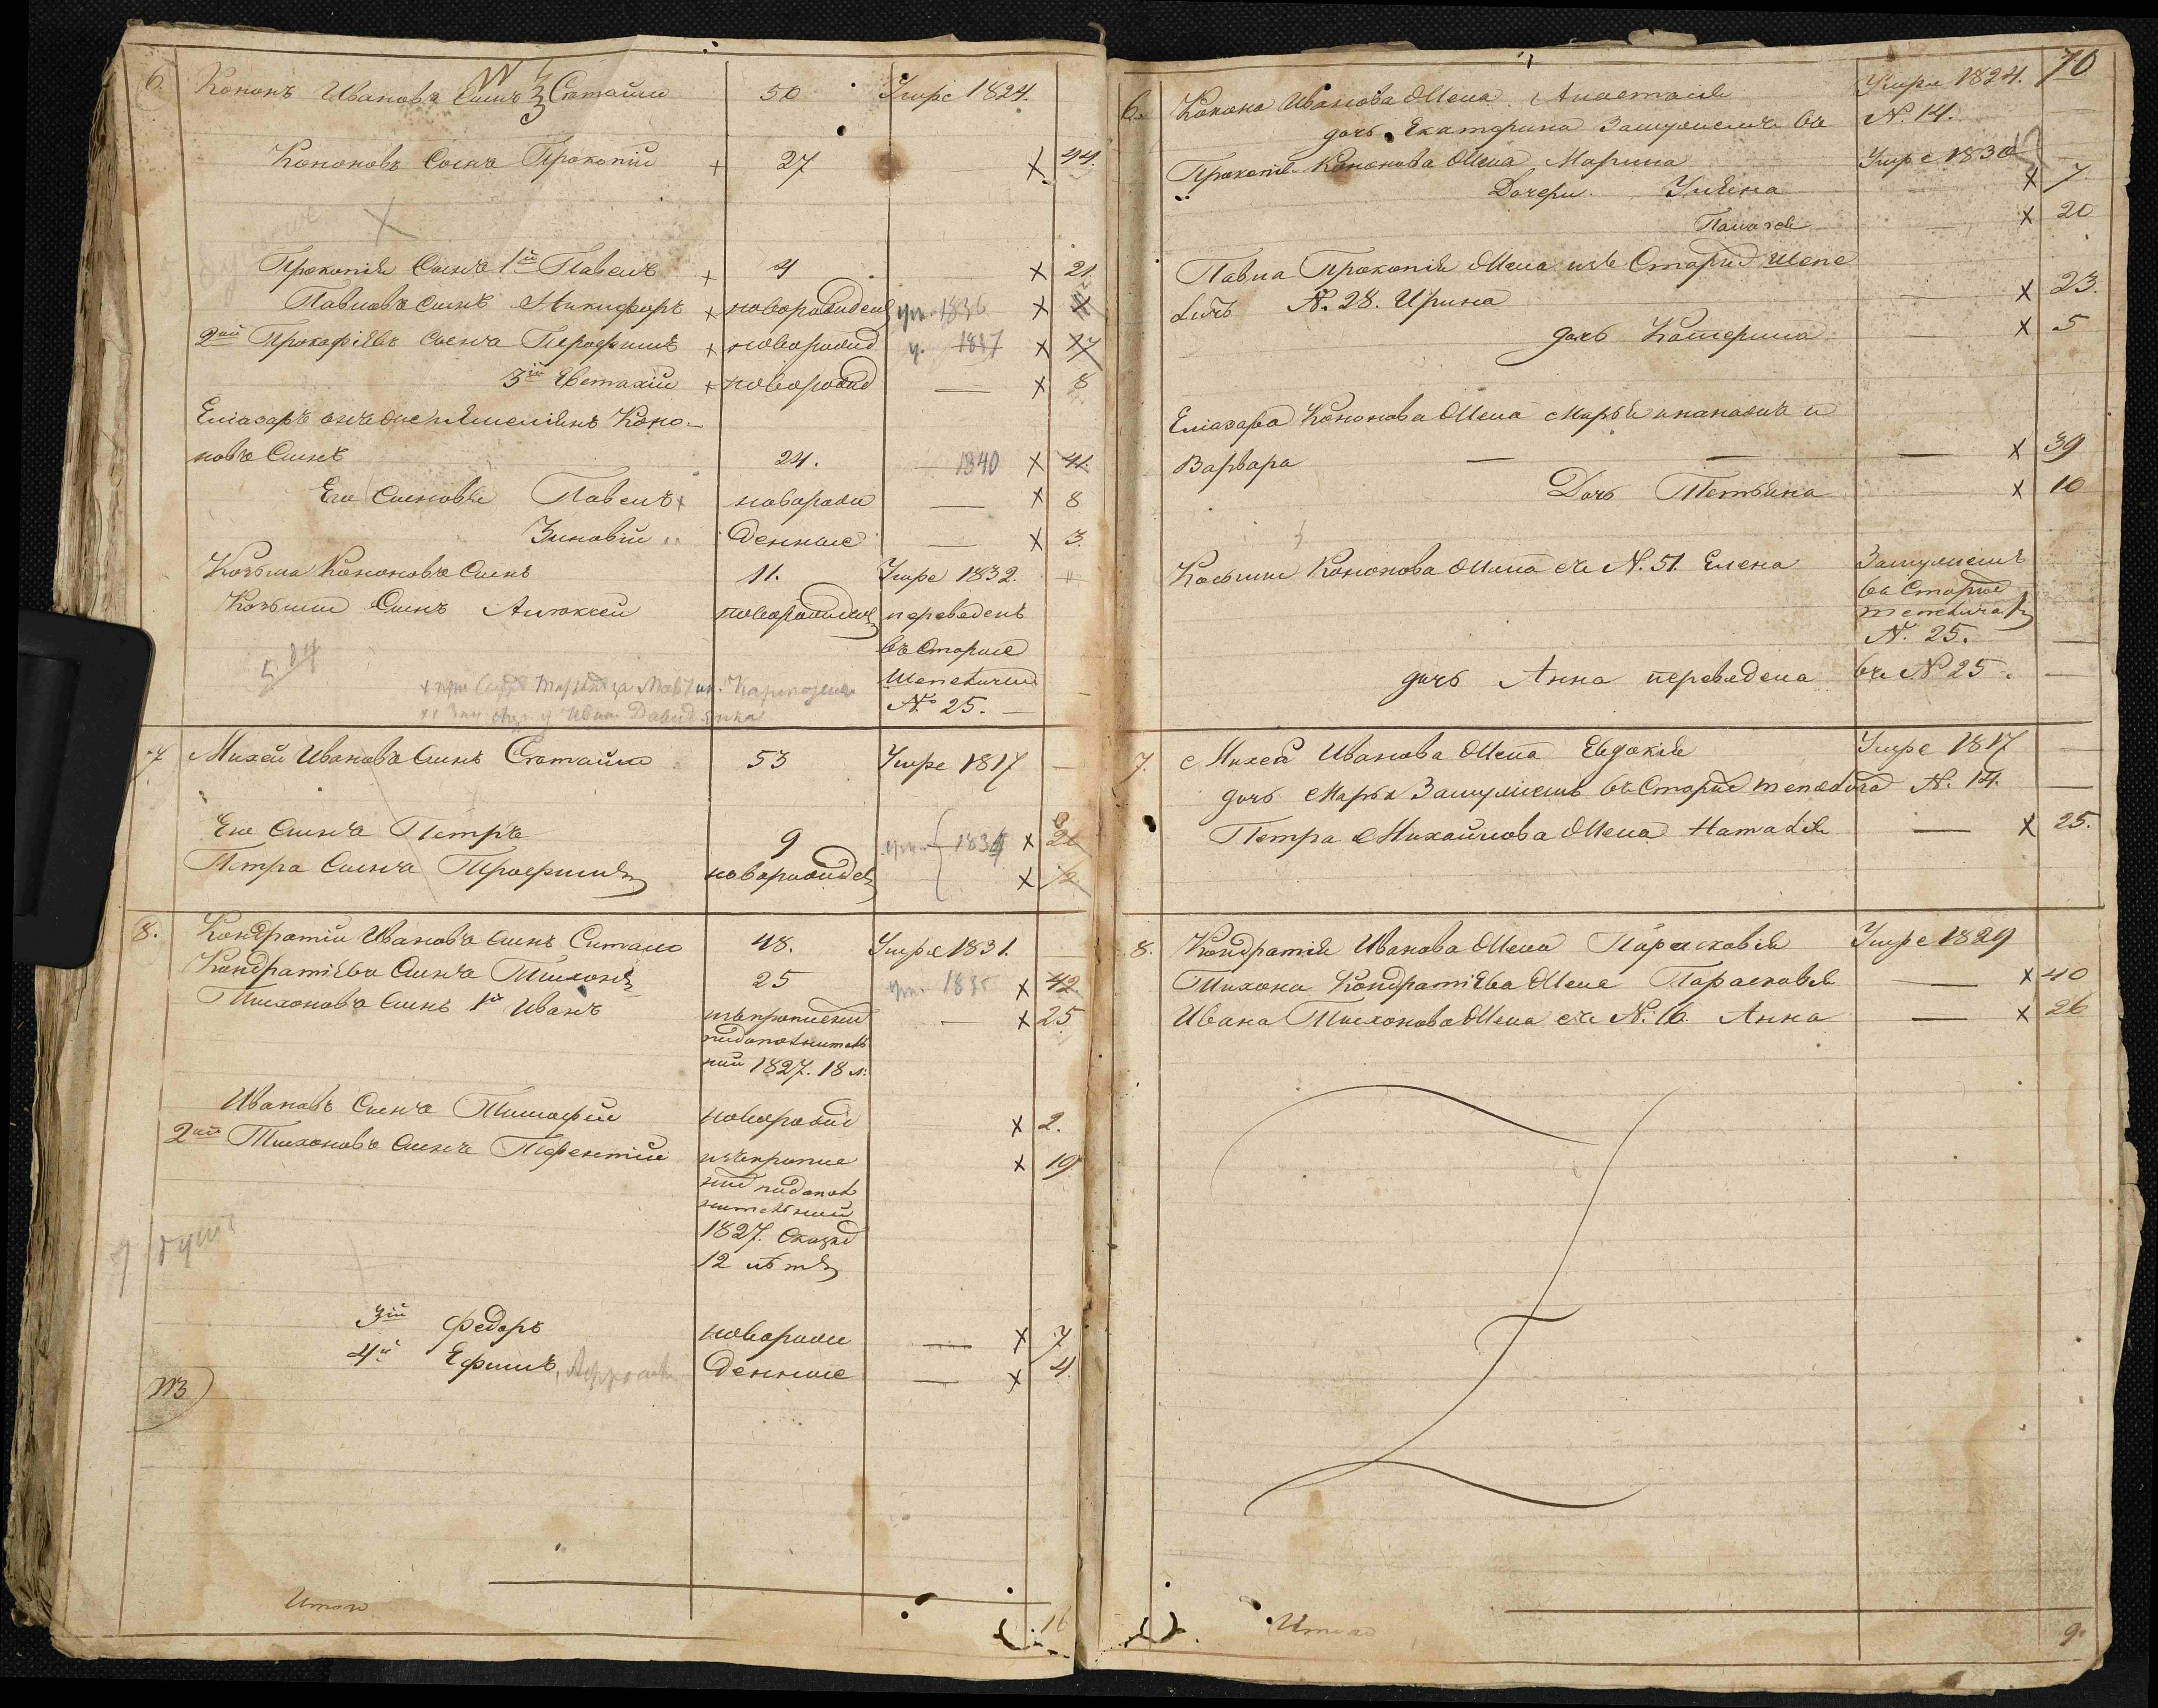 6. Кононъ Ивановъ Сынъ Статайло 50 Умре 1824.
Кононовъ Сынъ Прокопій + 27 х 44.
Прокопія Сынъ 1й Павелъ + 4 х 21.
Павловъ сынъ Никифоръ + новорожденъ 1836 х
2ой Прокофіевъ Сынъ Терофимъ + новорожд 1837 х 17
3ій Евстахій + новорожд — х 8
Еліазаръ Коно-
новъ Сынъ 24. — 1840 х 41.
Его Сыновья Павелъ х новорож — х 8
Зиновій денные — х 3.
Козьма Кононовъ Сынъ 11. Умре 1832.
Козьмы Сынъ Алексей новорожден переведенъ
въ Старые
Шепеличи
№ 25. —
7 Михей Ивановъ Сынъ Статайло 53 Умре 1817 —
Его Сынъ Петръ 9 1834 х 26
Петра Сынъ Трофимъ новорожден х 2
8. Кондратій Ивановъ сынъ Ситайло 48. Умре 1831.
Кондратіевъ Сынъ Тихонъ 25 1835 х 42
Тихоновъ Сынъ 1й Иванъ изъ прописки — х 25
ній 1827. 18 л.
Ивановъ Сынъ Тимофей новорожд х 2.
2ой Тихоновъ Сынъ Терентій х 19
1827. Сказкѣ
12 лѣтъ
9 душъ
3ій Федоръ новорож — х 7
4й Ефимъ денные — х 4
Итого 16
70
6. Конона Иванова Жена Анастасія Умре 1824.
дочь Екатерина Замужемъ въ № 14.
Прокопія Кононова Жена Марина Умре 1830
Дочери Уліяна х 7
Палазея х 20
Павла Прокопія Жена изъ Старыхъ Шепе
личъ № 28. Ирина — х 23.
дочь Катерина — х 5
Еліазара Кононова Жена
Варвара — — — х 39
Дочь Тетьяна х 10
Козьмы Кононова Жена съ № 51. Елена Замужемъ
въ Старые
Шепеличи
№ 25. —
дочь Анна переведена въ № 25. —
7. Михея Иванова Жена Евдокія Умре 1817 —
дочь Марья Замужемъ въ Старые Шепеличи № 14. —
Петра Михайлова Жена Наталія — х 25.
8. Кондратія Иванова Жена Парасковія Умре 1829
Тихона Кондратіева Жена Парасковія — х 40
Ивана Тихонова Жена съ № 16. Анна — х 26
Итого 9.